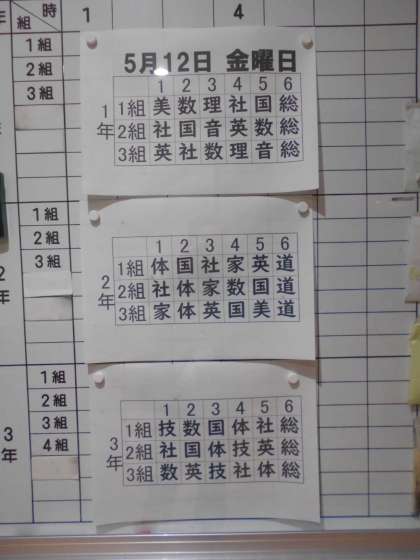 時
組
1
4
1組
2組
3組
5月12日 金曜日
1 2 3 4 5 6
1年
1組 美 数 理 社 国 総
2組 社 国 音 英 数 総
3組 英 社 数 理 音 総
1組
2組
3組
2年
1 2 3 4 5 6
2年
1組 体 国 社 家 英 道
2組 社 体 家 数 国 道
3組 家 体 英 国 美 道
1組
2組
3組
4組
3年
1 2 3 4 5 6
3年
1組 技 数 国 体 社 総
2組 社 国 体 技 英 総
3組 数 英 技 社 体 総